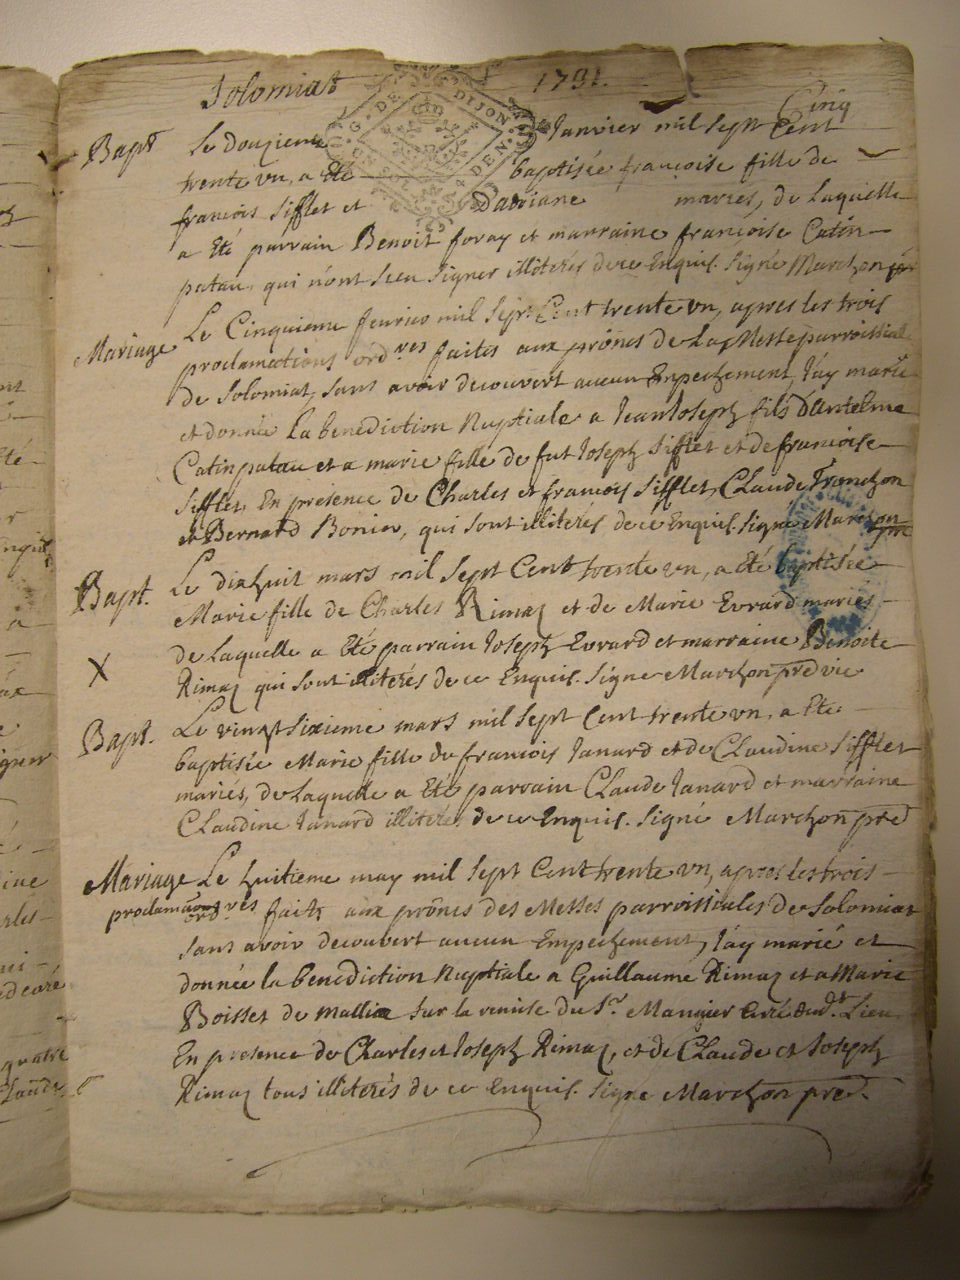 Solomiat 1731.
G. DE DIJON.
UN SOL 4 DEN.
Cinq
Bapt Le Douzieme Janvier mil sept Cent
trente un, a Eté baptisée françoise fille de
francois Sifflet et Dauviane mariés, de Laquelle
a Eté parrain Benoit foray et marraine françoise Catin
patau, qui n'ont sceu signer illiterés de ce Enquis. Signé Marchon
Mariage Le Cinquieme fevrier mil sept Cent trente un, apres les trois
proclamations ord.res faites aux prônes de La Messe parroissial
de Solomiat, sans avoir decouvert aucun Enpechement, J'ay marié
et donné La benediction Nuptiale a Jean Joseph fils D'Antelme
Catin patau et a marie fille de fut Joseph Sifflet et de francoise
Sifflet, En présence de Charles et francois Sifflet, Claude Tranchon
et Bernard Bonier, qui sont illiterés de ce Enquis. Signé Marchon pre
Bapt. Le dixhuit mars mil sept Cent trente un, a été baptisée
Marie fille de Charles Rimaz et de Marie Evrard mariés
de Laquelle a Eté parrain Joseph Evrard et marraine Benoite
X Rimaz qui sont illiterés de ce Enquis. Signe Marchon pre vic
Bapt. Le vingt sixieme mars mil sept Cent trente un, a Ete
baptisée Marie fille de francois Janard et de Claudine Sifflet
mariés, de Laquelle a Eté parrain Claude Janard et marraine
Claudine Janard illiterés de ce Enquis. Signé Marchon pre
Mariage Le huitieme may mil sept Cent trente un, apres les trois
proclamaons ord.res faits aux prônes des Messes parroissiales de Solomiat
sans avoir decouvert aucun Empechement, J'ay marié et
donnée la benediction Nuptiale a Guillaume Rimaz et a Marie
Boisset de Mallia sur la remise du Sr. Mangier Curé dud.t Lieu
En presence de Charles et Joseph Rimaz, et de Claude et Joseph
Rimaz tous illiterés de ce Enquis. Signe Marchon pre.